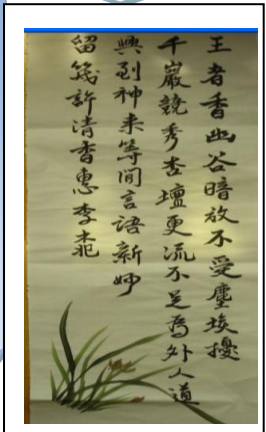 王者香幽谷暗放不受塵埃擾
千巖競秀杏壇更流不足為外人道
興到神來等閒言語新婦
留箋許清香惠李桃